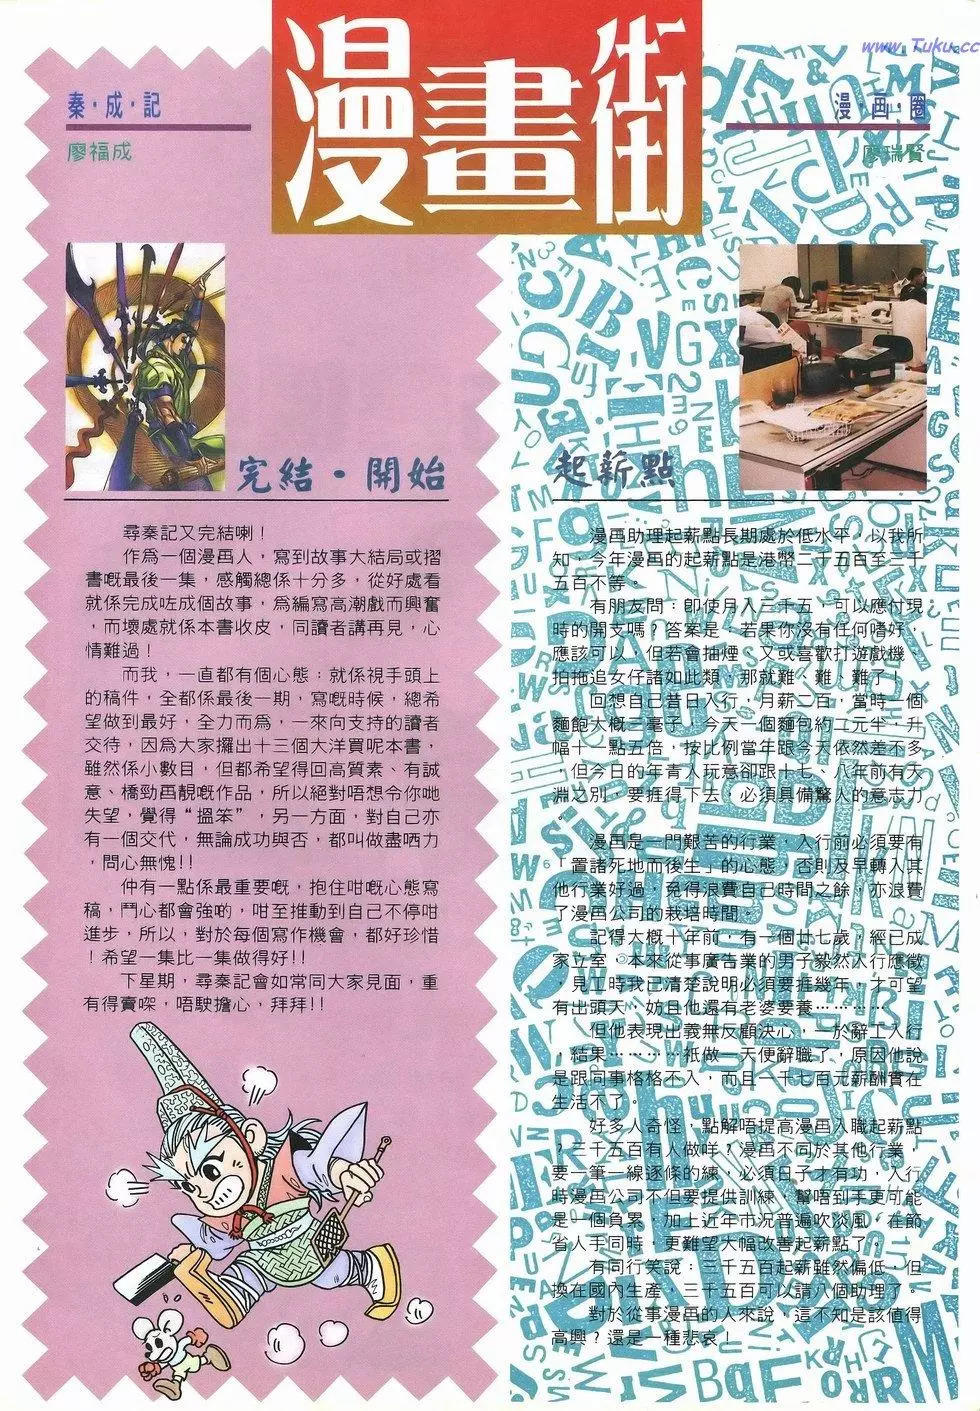 www.Tuku.cc
漫畫街
秦·成·記
廖福成
完結·開始
尋秦記又完結喇！
作為一個漫画人，寫到故事大結局或摺
書嘅最後一集，感觸總係十分多，從好處看
就係完成咗成個故事，為編寫高潮戲而興奮
，而壞處就係本書收皮，同讀者講再見，心
情難過！
而我，一直都有個心態：就係視手頭上
的稿件，全都係最後一期，寫嘅時候，總希
望做到最好，全力而為，一來向支持的讀者
交待，因為大家攞出十三個大洋買呢本書，
雖然係小數目，但都希望得回高質素、有誠
意、橋勁画靚嘅作品，所以絕對唔想令你哋
失望，覺得“搵笨”，另一方面，對自己亦
有一個交代，無論成功與否，都叫做盡哂力
，問心無愧!!
仲有一點係最重要嘅，抱住咁嘅心態寫
稿，鬥心都會強啲，咁至推動到自己不停咁
進步，所以，對於每個寫作機會，都好珍惜
！希望一集比一集做得好!!
下星期，尋秦記會如常同大家見面，重
有得賣㗎，唔駛擔心，拜拜!!
漫·画·圈
廖瑞賢
起薪點
漫画助理起薪點長期處於低水平，以我所
知，今年漫画的起薪點是港幣二千五百至三千
五百不等。
有朋友問：即使月入三千五，可以應付現
時的開支嗎？答案是，若果你沒有任何嗜好，
應該可以，但若會抽煙、又或喜歡打遊戲機、
拍拖追女仔諸如此類，那就難、難、難了。
回想自己昔日入行，月薪二百，當時一個
麵飽大概二毫子，今天一個麵包約二元半，升
幅十二點五倍，按比例當年跟今天依然差不多
，但今日的年青人玩意卻跟十七、八年前有天
淵之別，要捱得下去，必須具備驚人的意志力
。
漫画是一門艱苦的行業，入行前必須要有
「置諸死地而後生」的心態，否則及早轉入其
他行業好過，免得浪費自己時間之餘，亦浪費
了漫画公司的栽培時間。
記得大概十年前，有一個廿七歲，經已成
家立室，本來從事廣告業的男子毅然入行應徵
，見工時我已清楚說明必須要捱幾年，才可望
有出頭天，妨且他還有老婆要養…………
但他表現出義無反顧決心，一於辭工入行
，結果…………祇做一天便辭職了，原因他說
是跟同事格格不入，而且一千七百元薪酬實在
生活不了。
好多人奇怪，點解唔提高漫画入職起薪點
，三千五百有人做咩？漫画不同於其他行業，
要一筆一線逐條的練，必須日子才有功，入行
時漫画公司不但要提供訓練，幫唔到手更可能
是一個負累，加上近年市況普遍吹淡風，在節
省人手同時，更難望大幅改善起薪點了。
有同行笑說：三千五百起薪雖然偏低，但
換在國內生產，三千五百可以請八個助理了。
對於從事漫画的人來說，這不知是該值得
高興？還是一種悲哀！